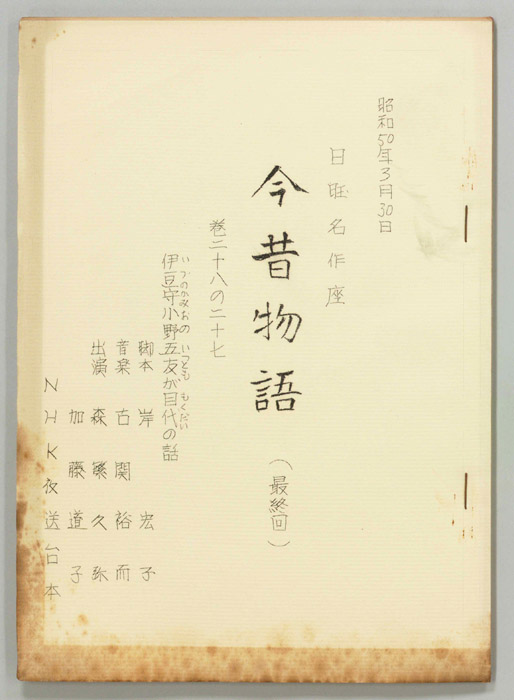 昭和50年3月30日
日曜名作座
今昔物語 (最終回)
巻二十八の二十七
いづのかみおの いつとも もくだい
伊豆守小野五友が目代の話
脚本 岸 宏子
音楽 古関裕而
出演 森繁久弥
加藤道子
NHK放送台本